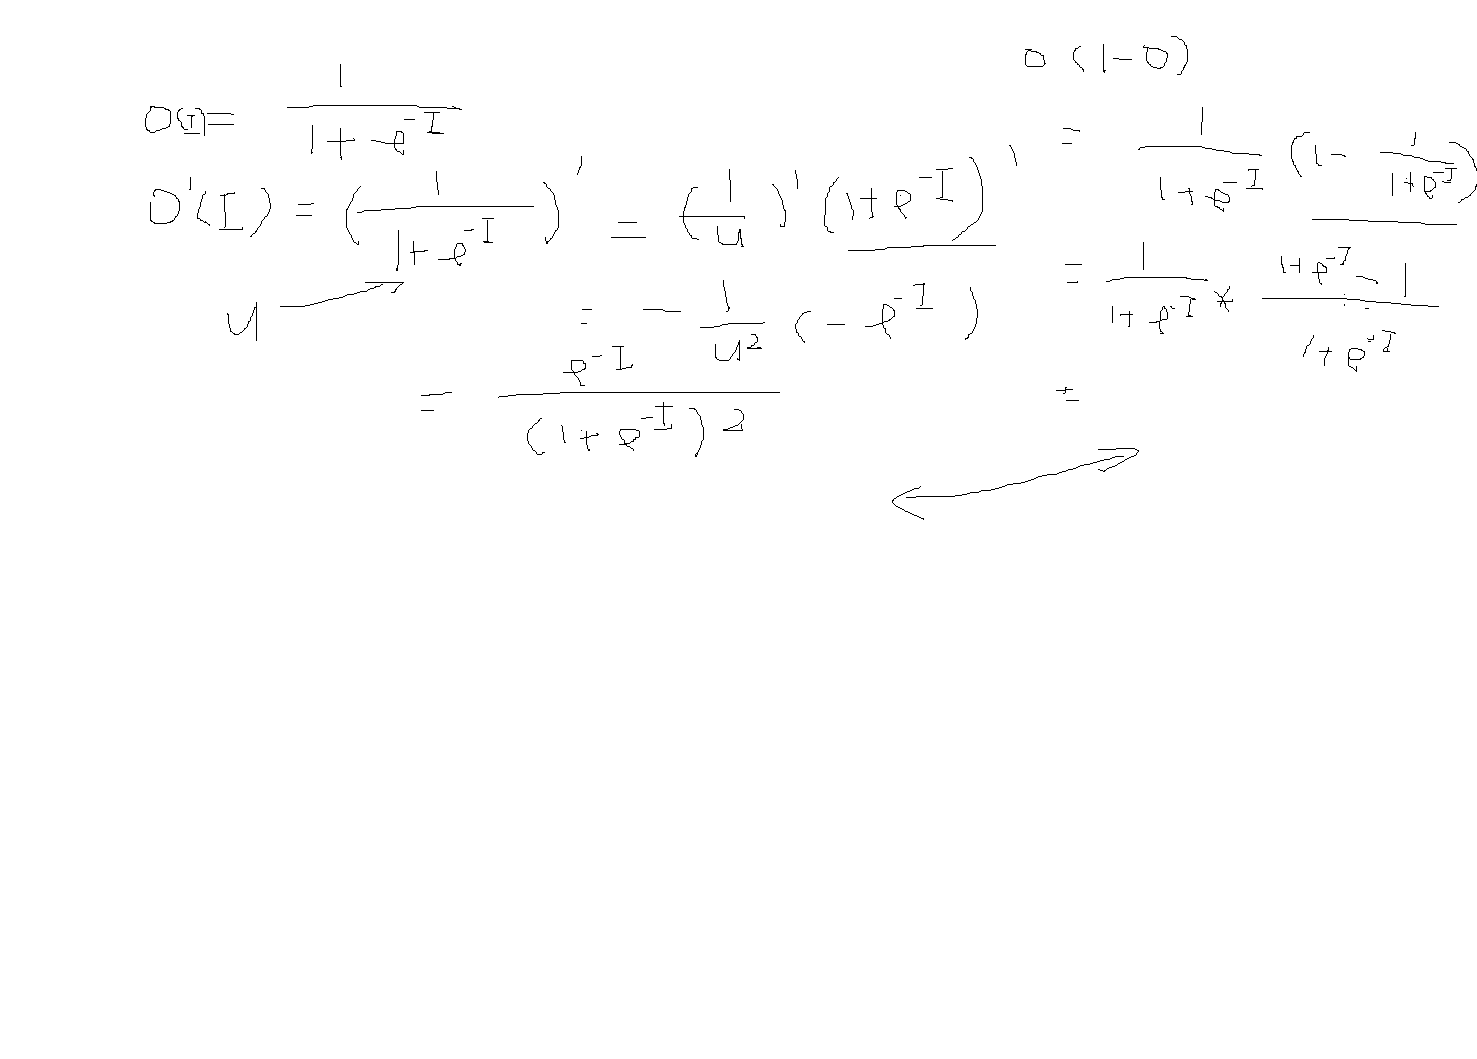 O(I) = 1 / (1 + e^-I)
O'(I) = (1 / (1 + e^-I))' = (1/u)' (1 + e^-I)'
u
= - 1/u^2 (- e^-I)
= e^-I / (1 + e^-I)^2
O (1 - O)
= 1 / (1 + e^-I) (1 - 1 / (1 + e^-I))
= 1 / (1 + e^-I) * (1 + e^-I - 1) / (1 + e^-I)
=